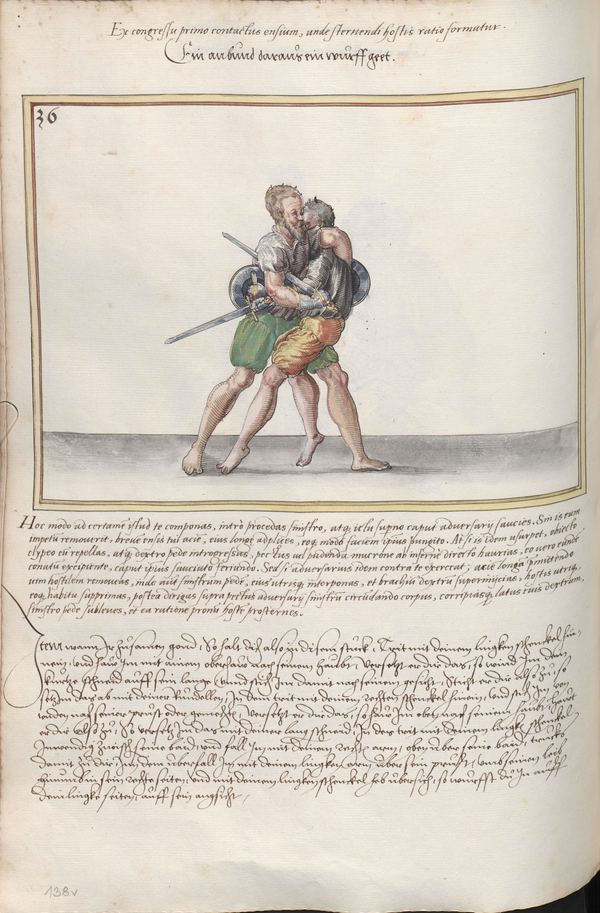 Ex congressu primo contactus ensium, unde sternendi hostis ratio formatur.
Ein anbund daraus ein wurff geet.
36
Hoc modo ad certamē istud te componas, intrò procedas sinistro, atq; ictu supno caput adversarij saucies. Sin is eum
impetū removerit, breve ensis tui acie, eius longę adplices, eoq; modo faciem ipsius pungito. At si is idem usurpet, obiecto
clypeo eū repellas, atq; dextro pede introgressus, pectus vel pudenda mucrone ab inferne directo haurias, eo vero rursus
conatū excipiente, caput ipsius sauciato feriundo. Sed si adversarius idem contra te exerceat; acie longa
vim hostilem removeas, inde sinistrum pede, eius utrisq; interponas, et brachiū dextrū superinijcias, hostis utriq;
eoq; habitu supprimas, postea dirigas supra pectus adversarij sinistrū circūdando corpus, corripiasq; latus eius dextrum,
sinistro pede subleves, et ea ratione pronū hostē prosternes.
Item wann Ir zusamen gond, So halt dich also in disem stuck, Trit mit deinem lingken schenckel hin-
nein, und haw Im mit ainem oberhaw nach seinem haubt, Versetzt er dir das, so wind Im dein
kurtze schneid auff sein lange, und stich Im damit nach seinem gesicht, Sticht er dir also zu, so
setz Im das ab mit deiner Rundellen, In dem trit mit deinem rechten schenckel hinein, und stich Im von
unden nach seiner prust oder gemechten, Versetzt er dir das, so haw Im oben nach seinem haubt, Hawt
er dir also zu, So versetz Im das mit deiner lang schneid, In des trit mit deinem lingken schenckel
Inwendig zwisch seine baid, und fall Im mit deinem rechten arm, oben uber seine baid, truckts
damit zu dir, In dem uberfall Im mit deinem lingken arm uber sein prust, umb seinen leib
Im sein rechte seiten, und mit deinem lingken schenckel heb ubersich, so wurffst du In auff
dein lingke seiten, auff sein angsicht.
138v